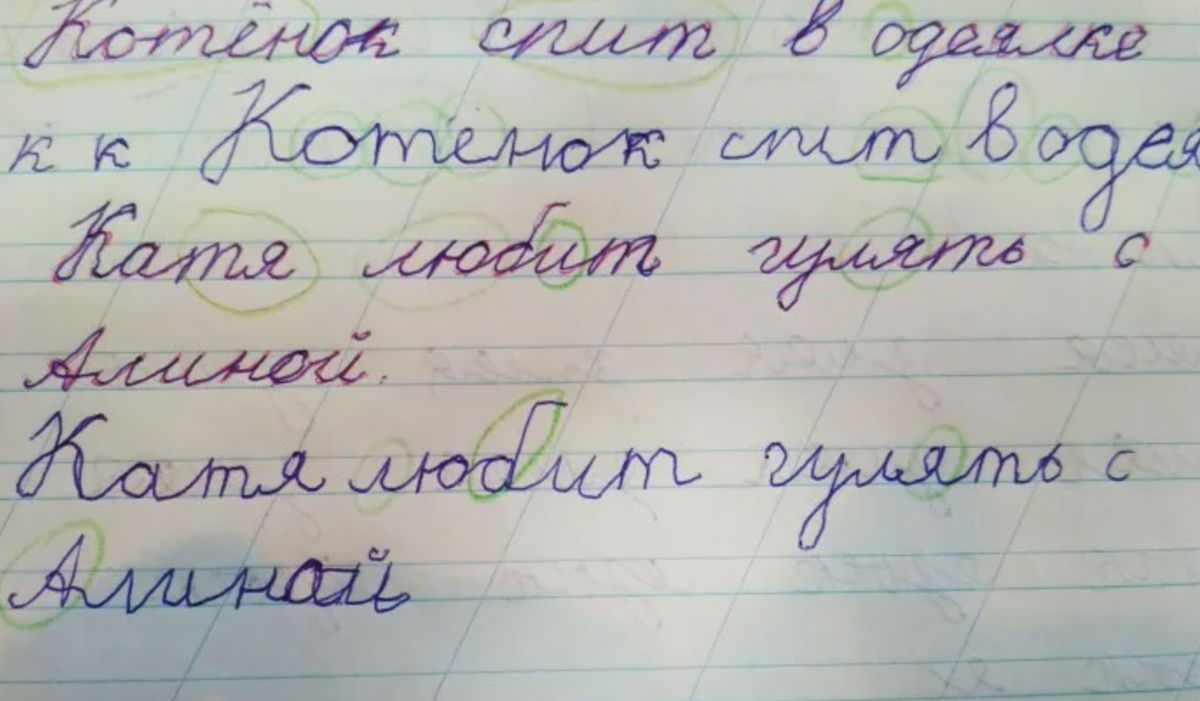 Котёнок спит в одеялке
к к Котёнок спит в одея
Катя любит гулять с
Алиной.
Катя любит гулять с
Алиной